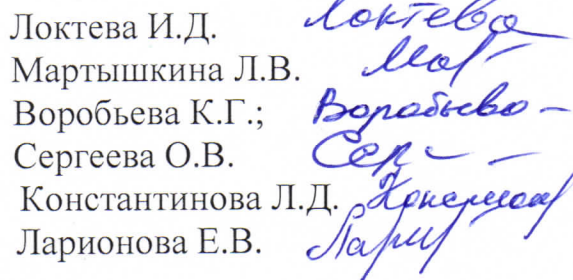 Локтева И.Д. Локтева
Мартышкина Л.В. Мар
Воробьева К.Г.; Воробьева
Сергеева О.В. Сер
Константинова Л.Д.
Ларионова Е.В. Лари